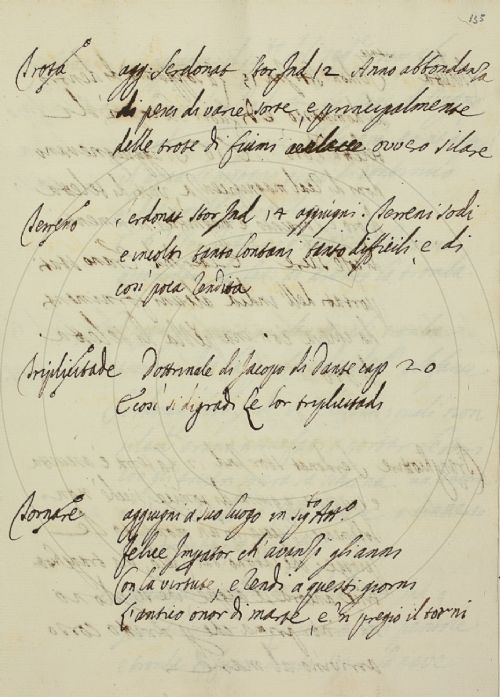 155
Trota agg: Serdonat Stor Ind 12 Anno abbondanza
di pesci di varie sorte, e principalmente
delle trote di fiumi ovvero silare
Terreno Serdonat Stor Ind 14 aggiugni. Terreni sodi
e incolti tanto lontani, tanto difficili, e di
così poca rendita
Triplicitade Dottrinale di Jacopo di Dante cap 20
E così si digradi le lor triplicitadi
Tornare aggiugni a suo luogo in
felice Ch' avanzi gli anni
Con la virtute, e rendi a questi giorni
L'antico onor di marte, e 'n pregio il torni